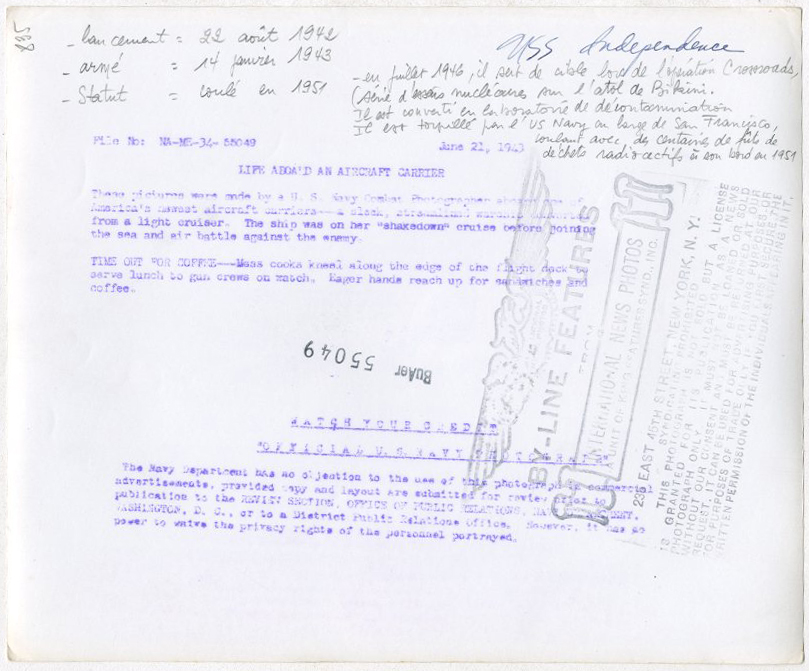 835
- lancement = 22 août 1942
- armé = 14 janvier 1943
- Statut = coulé en 1951
USS Independence
- en juillet 1946, il sert de cible lors de l'opération Crossroads,
(série d'essais nucléaires sur l'atol de Bikini.
Il est converti en laboratoire de décontamination
Il est torpillé par l'US Navy au large de San Francisco,
coulant avec des centaines de fûts de
déchets radioactifs à son bord en 1951
File No: NA-ME-34- 55049
June 21, 1943
LIFE ABOARD AN AIRCRAFT CARRIER
These pictures were made by a U. S. Navy Combat Photographer aboard one of
America's newest aircraft carriers---a sleek, streamlined warship converted
from a light cruiser. The ship was on her "shakedown" cruise before joining
the sea and air battle against the enemy.
TIME OUT FOR COFFEE---Mess cooks kneel along the edge of the flight deck to
serve lunch to gun crews on watch. Eager hands reach up for sandwiches and
coffee.
BuAer 55049
WATCH YOUR CREDIT
"OFFICIAL U.S. NAVY PHOTOGRAPH"
The Navy Department has no objection to the use of this photograph in commercial
advertisements, provided copy and layout are submitted for review prior to
publication to the REVIEW SECTION, OFFICE OF PUBLIC RELATIONS, NAVY DEPARTMENT,
WASHINGTON, D. C., or to a District Public Relations Office. However, it has no
power to waive the privacy rights of the personnel portrayed.
BY-LINE FEATURES
FROM
INTERNATIONAL NEWS PHOTOS
UNIT OF KING FEATURES SYND., INC.
235 EAST 45TH STREET, NEW YORK, N. Y.
THIS PHOTOGRAPH IS NOT SOLD BUT A LICENSE
WRITTEN PERMISSION OF THE INDIVIDUALS APPEARING IN IT.